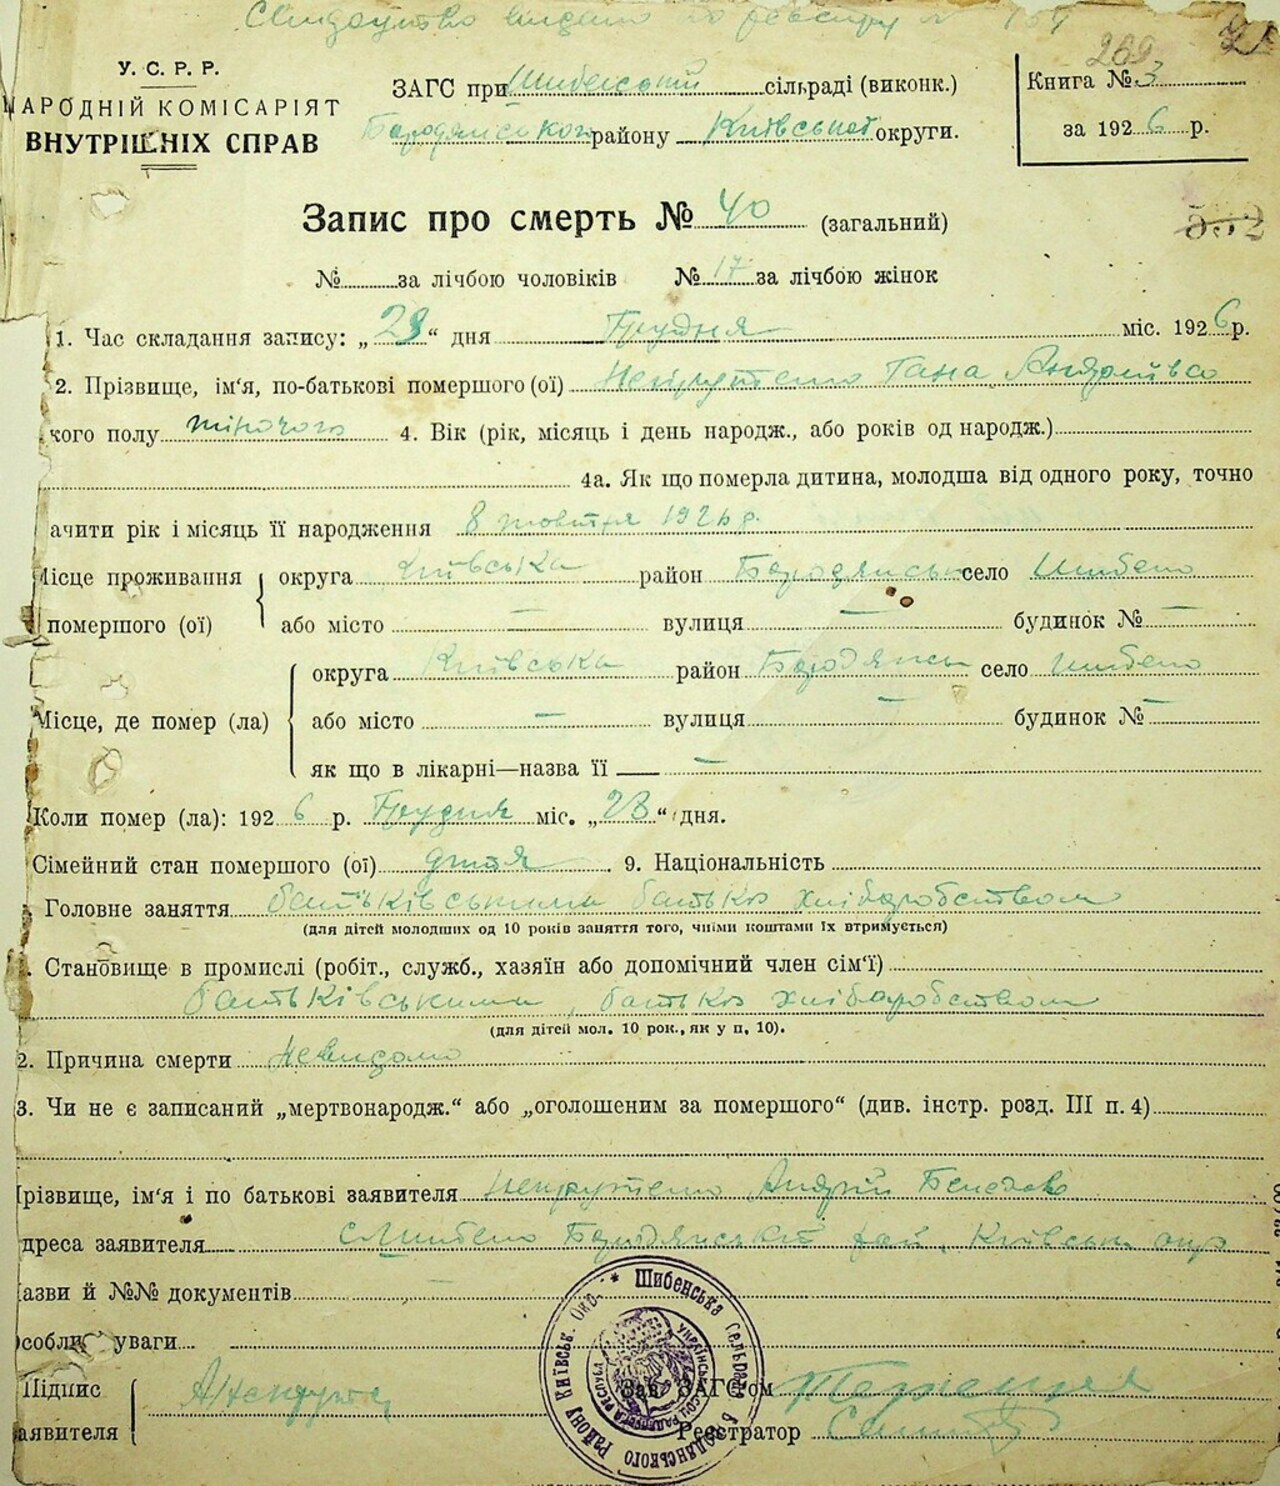 Свидоцтво видано по реєстру № 154
269
У. С. Р. Р.
НАРОДНІЙ КОМІСАРІЯТ
ВНУТРІШНІХ СПРАВ
ЗАГС при Шибенській сільраді (виконк.)
Бородянського району Київської округи.
Книга № 3
за 1926 р.
Запис про смерть № 40 (загальний)
№ за лічбою чоловіків № 17 за лічбою жінок
1. Час складання запису: „29“ дня Грудня міс. 1926 р.
2. Прізвище, ім'я, по-батькові помершого (ої) Андрійва
кого полу жіночого 4. Вік (рік, місяць і день народж., або років од народж.)
4а. Як що померла дитина, молодша від одного року, точно
ачити рік і місяць її народження 8 жовтня 1926 р.
Місце проживання округа Київська район Бородянськ село Шибено
помершого (ої) або місто — вулиця — будинок № —
округа Київська район Бородянськ село Шибено
Місце, де помер (ла) або місто — вулиця — будинок № —
як що в лікарні—назва її —
Коли помер (ла): 1926 р. Грудня міс. „28“ дня.
Сімейний стан помершого (ої) дитя 9. Національність
Головне заняття батьківськими батько хліборобством
(для дітей молодших од 10 років заняття того, чиїми коштами їх втримується)
Становище в промислі (робіт., служб., хазяїн або допомічний член сім'ї)
батьківськими, батько хліборобством
(для дітей мол. 10 рок., як у п. 10).
2. Причина смерти невидомо
3. Чи не є записаний „мертвонародж.“ або „оголошеним за помершого“ (див. інстр. розд. III п. 4)
різвище, ім'я і по батькові заявителя Андрій
дреса заявителя с. Шибено Бородянський рай. Київськ окр
азви й №№ документів —
собли уваги
Підпис
аявителя
Зав. ЗАГСом
Реєстратор
* Шибенська Сельрада Бородянського Району Київськ. Окр.
Українська соц. радянська республ.